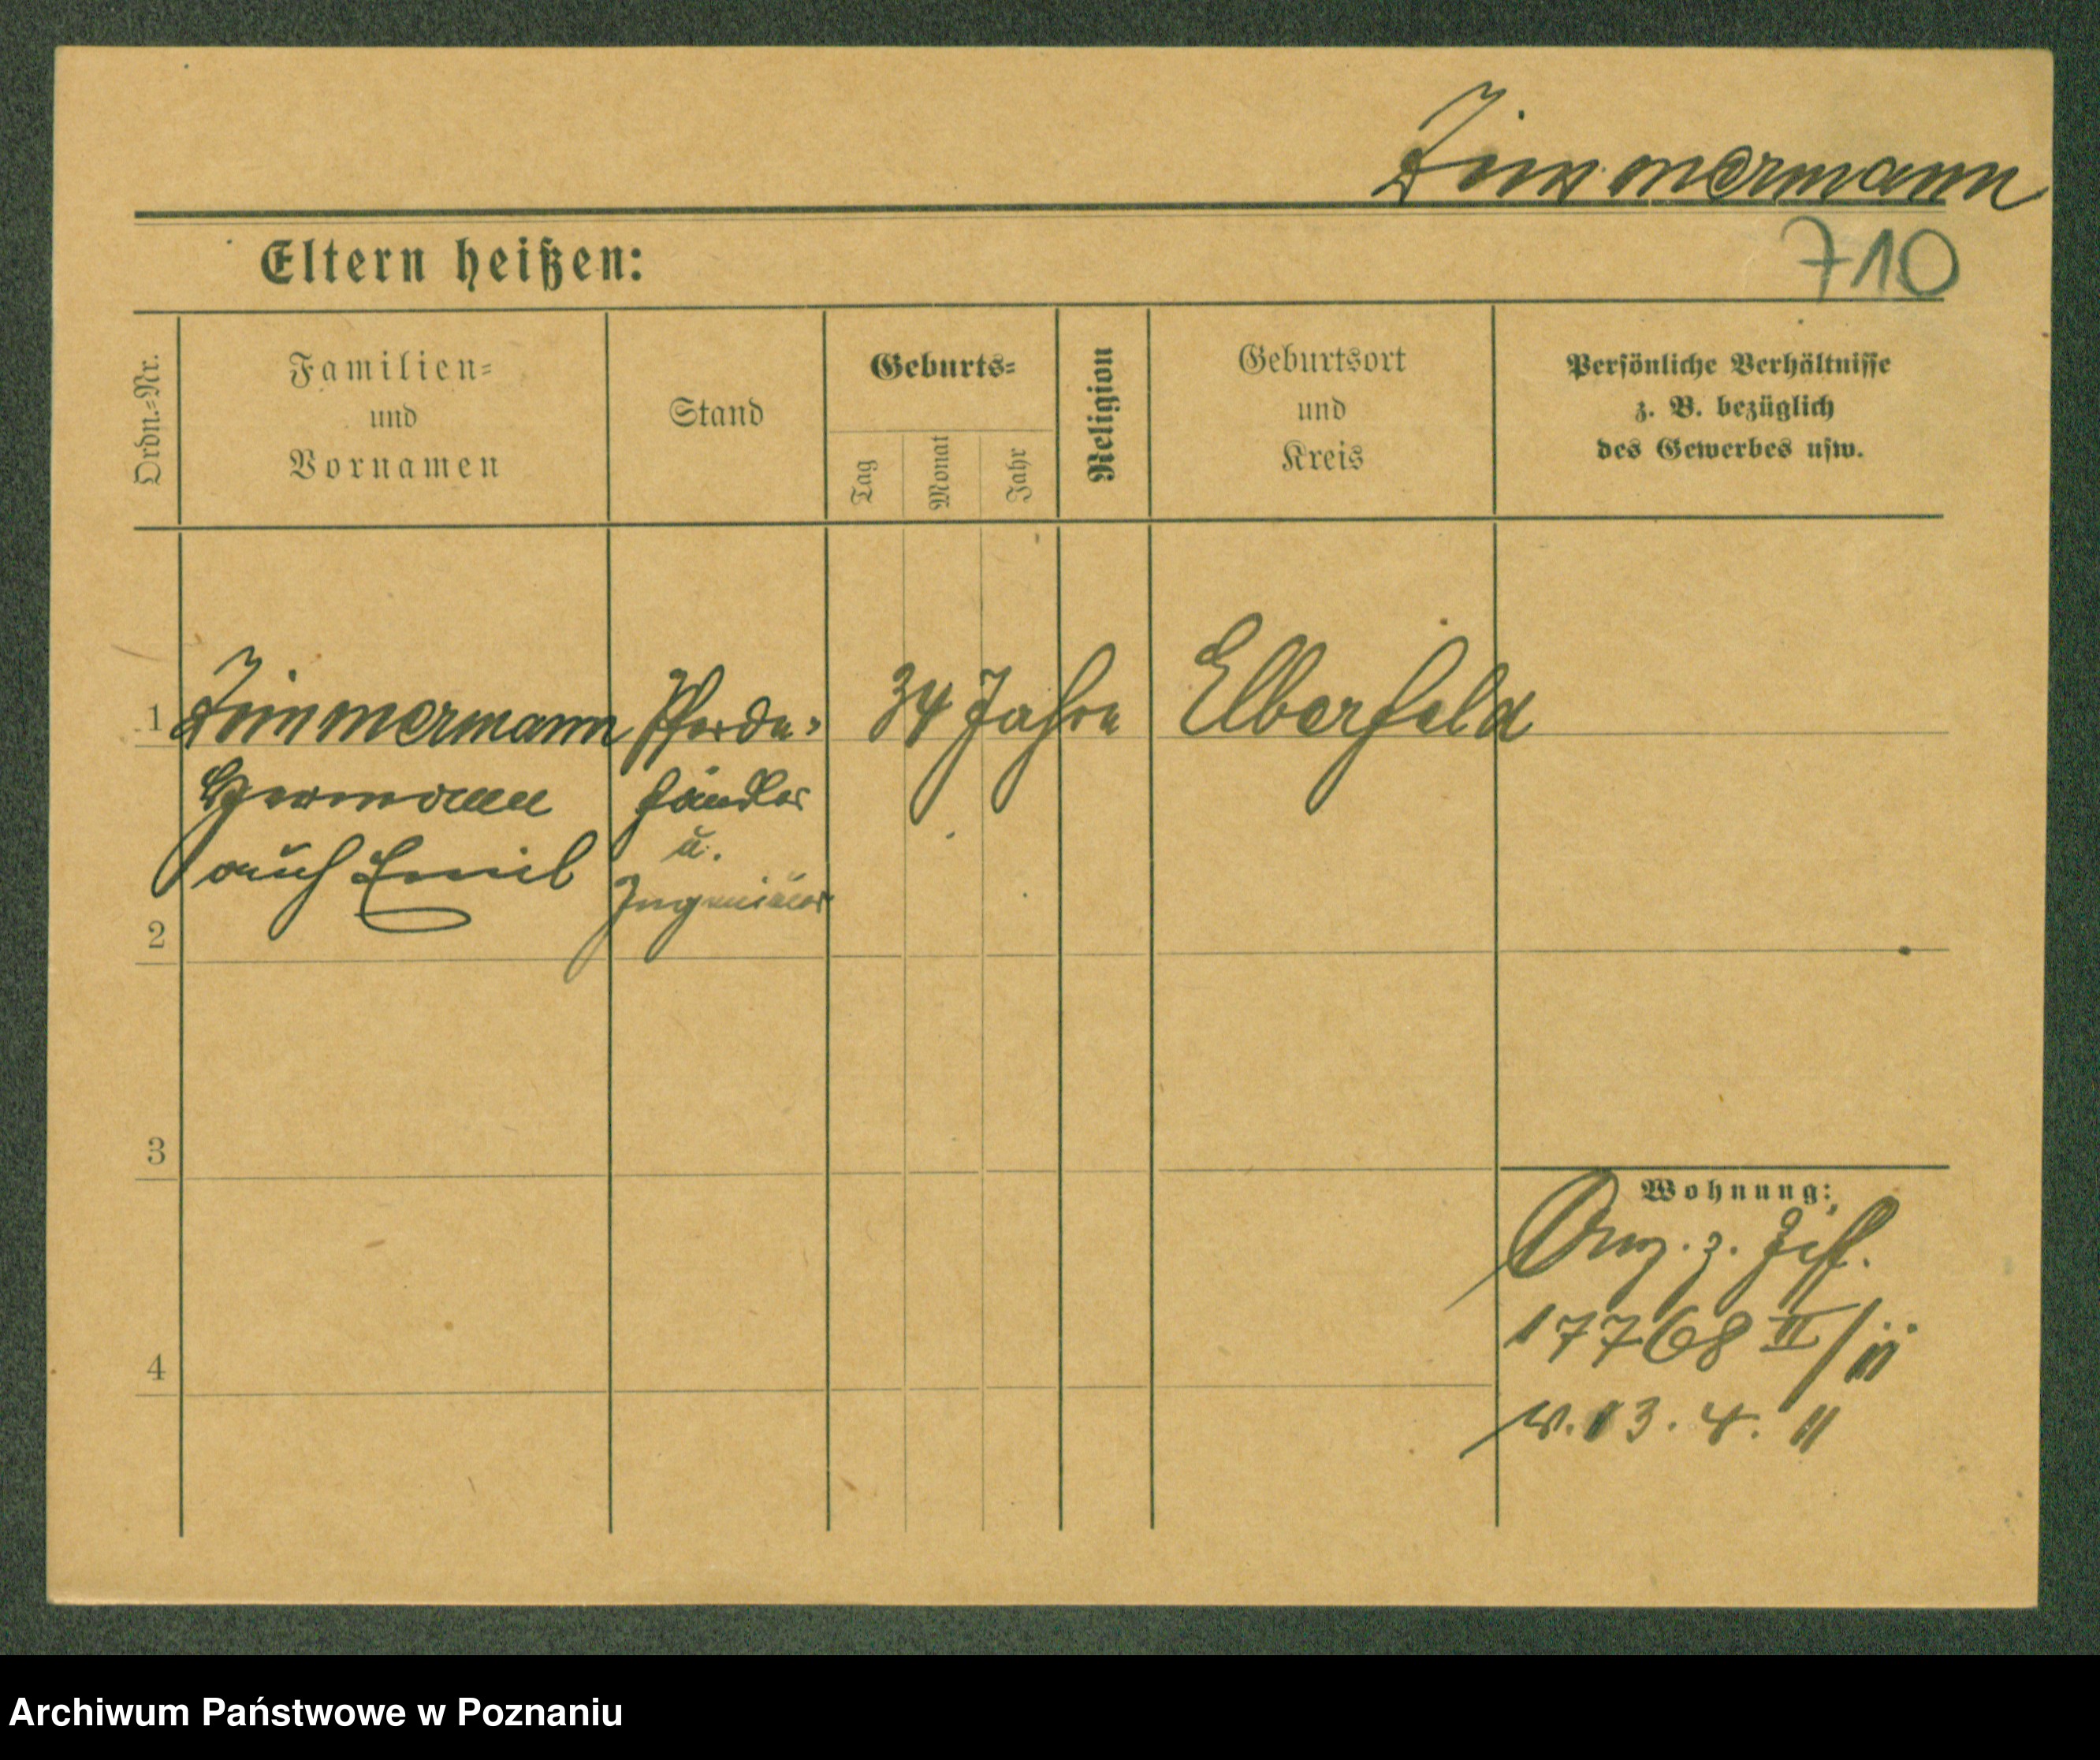 Zimmermann
Eltern heißen:
710
Ordn.-Nr.
Familien-
und
Vornamen
Stand
Geburts-
Tag
Monat
Jahr
Religion
Geburtsort
und
Kreis
Persönliche Verhältnisse
z. B. bezüglich
des Gewerbes usw.
1 Zimmermann Pferde- 34 Jahre Elberfeld
Hermann händler
auch Emil u.
Ingenieur
2
3
4
Wohnung:
z.
17768 II/11
v. 13. 4. 11
Archiwum Państwowe w Poznaniu